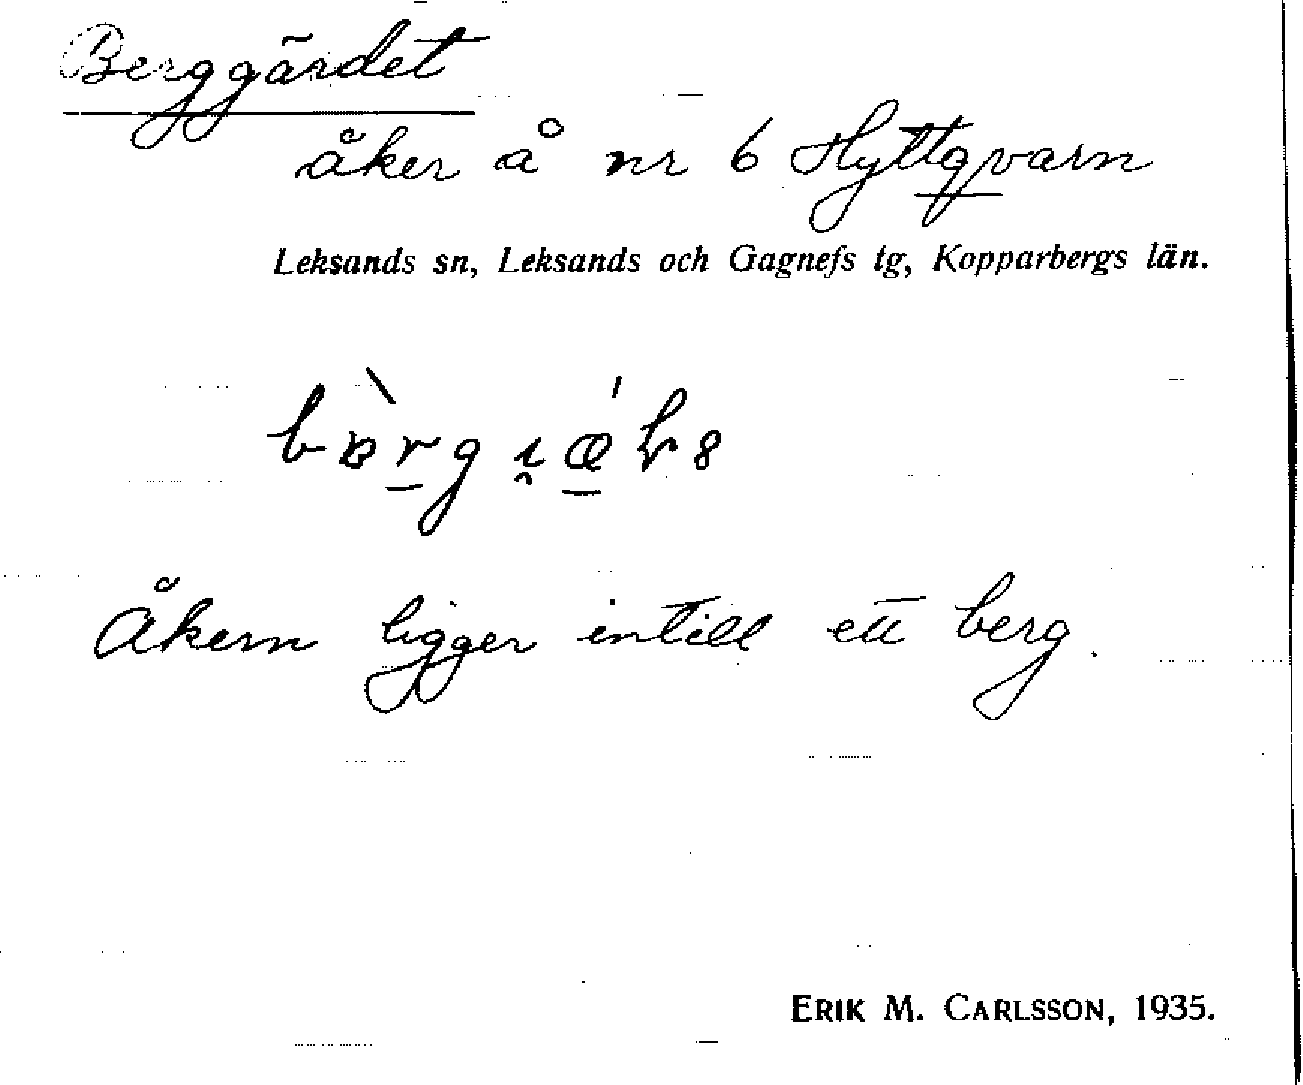 Berggärdet
åker å nr 6 Hyttqvarn
Leksands sn, Leksands och Gagnefs tg, Kopparbergs län.
Åkern ligger intill ett berg.
ERIK M. CARLSSON, 1935.